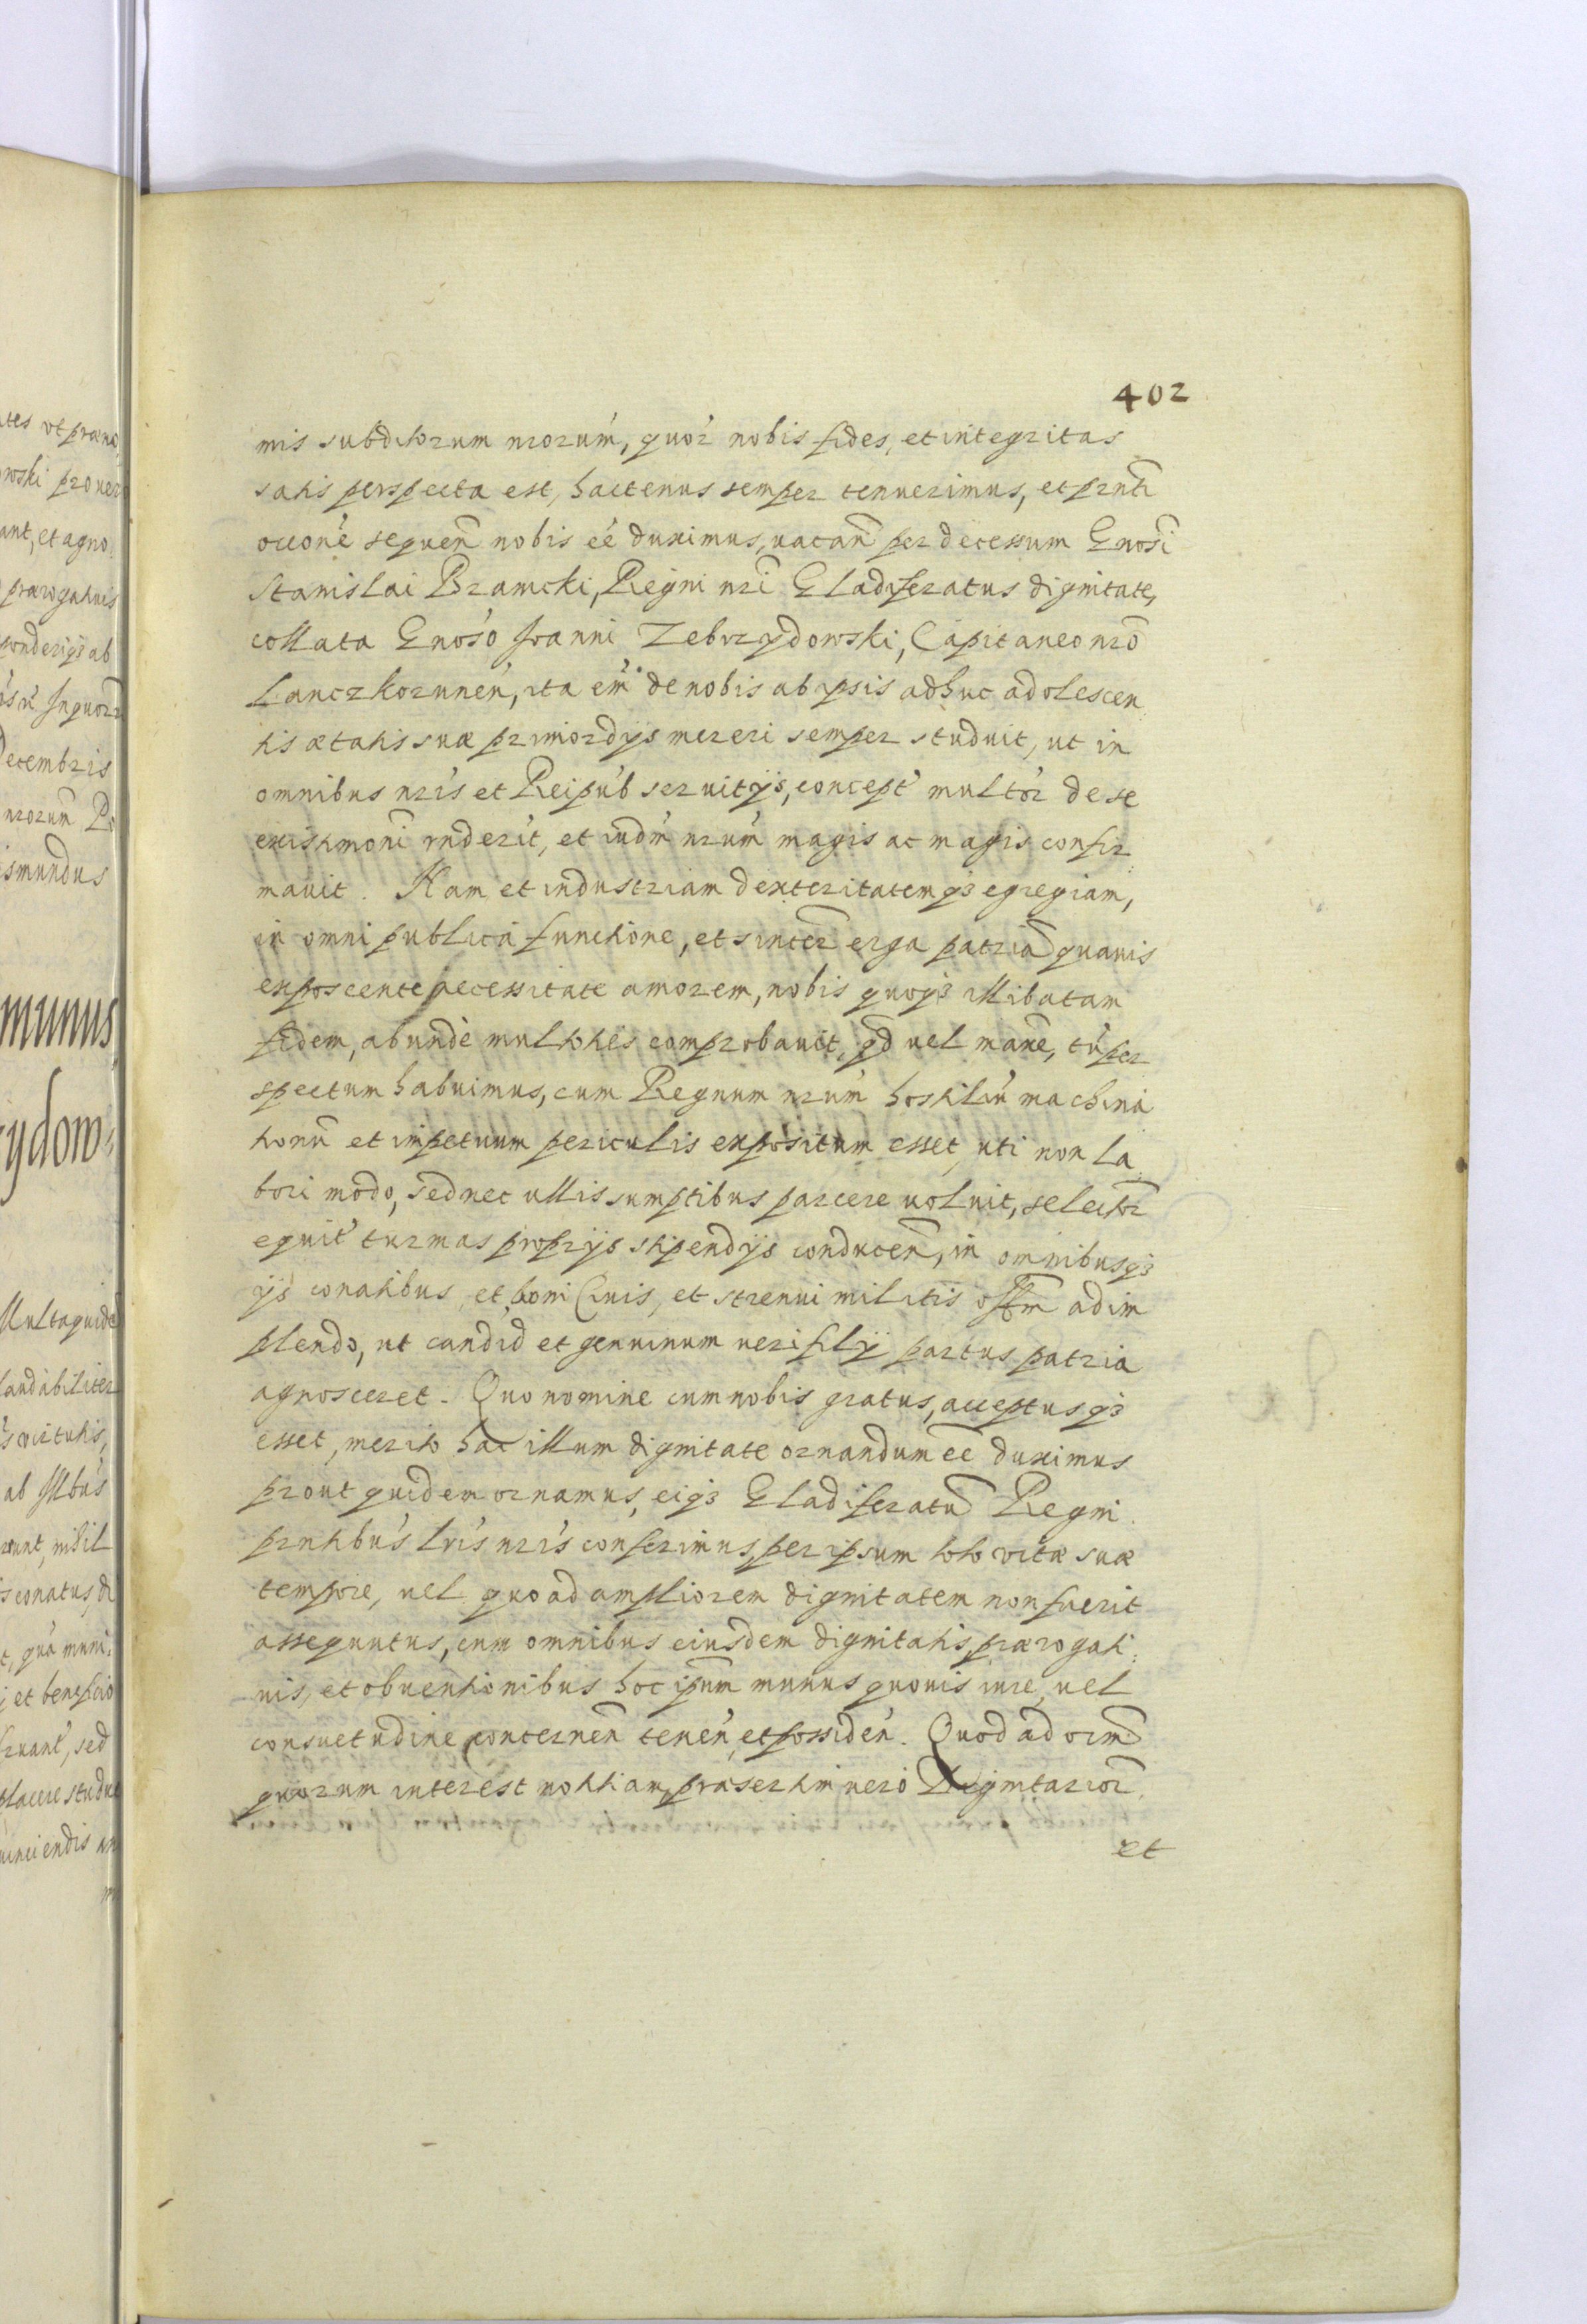 402
mis subditorum nrorum, quor nobis fides, et integritas
satis perspecta est, hactenus semper tenuerimus, et prnti
occone sequen nobis ee duximus, uacan per decessum Gnosi
Stanislai Branicki, Regni nri Gladiferatus dignitate,
collata Gnoso Joanni Zebrzydowski, Capitaneo nro
Lanczkorunen, ita em de nobis ab ipsis adhuc adolescen
tis ætatis suæ primordijs mereri semper studuit, ut in
omnibus nris et Reipub seruitijs, concept multor de se
existimoni rnderit, et iudm nrum magis ac magis confir
mauit. Nam et industriam dexteritatemq3 egregiam,
in omni publica functione, et sincer erga patria quauis
exposcente necessitate amorem, nobis quoq3 illibatam
fidem, abunde multoties comprobauit, qd uel maxe, tu per
spectum habuimus, cum Regnum nrum hostiliu machina
tionu et impetuum periculis expositum esset, uti non la
bori modo, sed nec ullis sumptibus parcere uoluit, selector
equit turmas proprijs stipendijs conducen, in omnibusq3
ijs conatibus, et boni Ciuis, et strenui militis offm adim
plendo, ut candid et genuinum ueri filij partus patria
agnosceret. Quo nomine cum nobis gratus, acceptusq3
esset, merito hac illum dignitate ornandum ee duximus
prout quidem ornamus, eiq3 Gladiferatu Regni
prntibus lris nris conferimus, per ipsum toto vitæ suæ
tempore, uel quoad ampliorem dignitatem non fuerit
assequutus, cum omnibus eiusdem dignitatis, prærogati
uis, et obuentionibus hoc ipum munus quouis iure, uel
consuetudine concernen tenen, et possiden. Quod ad oim
quorum interest notitiam, præsertim uero Dignitarior
et